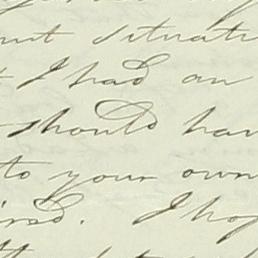 situati
I had an
should hav
to your own
ired. I hop